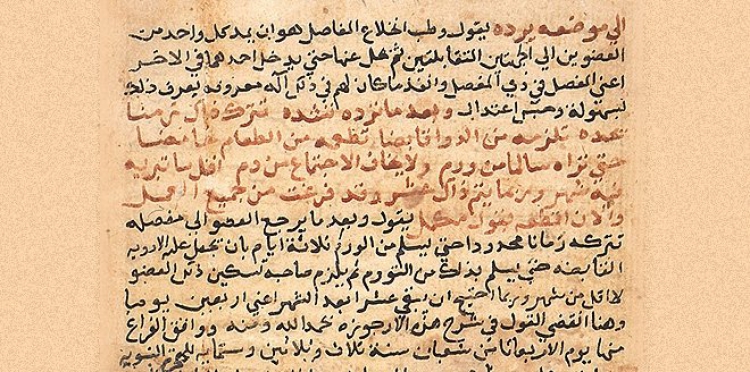 الي موضعه برده يقول وطب انخلاع المفاصل هو ان يمد كل واحد من
العضوين الي الجهتين المتقابلتين ثم عنها حتي يدخل احدهما في الاخر
اعني المفصل في ذي المفصل والفك ما كان لهم في ذلك آله معروفه يعرف ذلك
بسهولة وحسن اعتدال وبعد ما ترده تشده تتركه زمنا
تحده تلزمه من الدوا قابضا تطعمه من الطعام حامضا
حتي تراه سالما من ورم ولا يخاف الاجتماع من دم اقل ما تبريه
فيه شهر وربما يتم ذاك عشر وقد فرغت من جميع العمل
والان اقطعه بقول مكمل يقول وبعد ما يرجع العضو الي مفصله
تتركه زمانا محدودا حتي يسلم من الورم ثلاثة ايام بان تجعل عليه الادويه
القابضه حتي يسلم بذلك من التورم ثم يلزم صاحبه تسكين ذلك العضو
لا اقل من شهر وربما احتيج ان يبقي عشرا بعد الشهر اعني اربعين يوما
وهنا انقضي القول في شرح هذه الارجوزه بحمد الله ومنه ووافق الفراغ
منها يوم الاربعا من شعبان سنة ثلاث وثلاثين وستمايه للهجرة النبويه